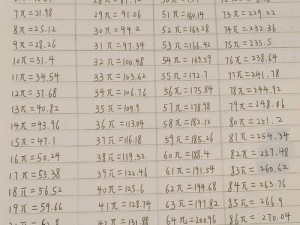 7π=21.98 29π=91.06 51π=160.14 73π=229.22
8π=25.12 30π=94.2 52π=163.28 74π=232.36
9π=28.26 31π=97.34 53π=166.42 75π=235.5
10π=31.4 32π=100.48 54π=169.56 76π=238.64
11π=34.54 33π=103.62 55π=172.7 77π=241.78
12π=37.68 34π=106.76 56π=175.84 78π=244.92
13π=40.82 35π=109.9 57π=178.98 79π=248.06
14π=43.96 36π=113.04 58π=182.12 80π=251.2
15π=47.1 37π=116.18 59π=185.26 81π=254.34
16π=50.24 38π=119.32 60π=188.4 82π=257.48
17π=53.38 39π=122.46 61π=191.54 83π=260.62
18π=56.52 40π=125.6 62π=194.68 84π=263.76
19π=59.66 41π=128.74 63π=197.82 85π=266.9
42π=131.88 64π=200.96 86π=270.04